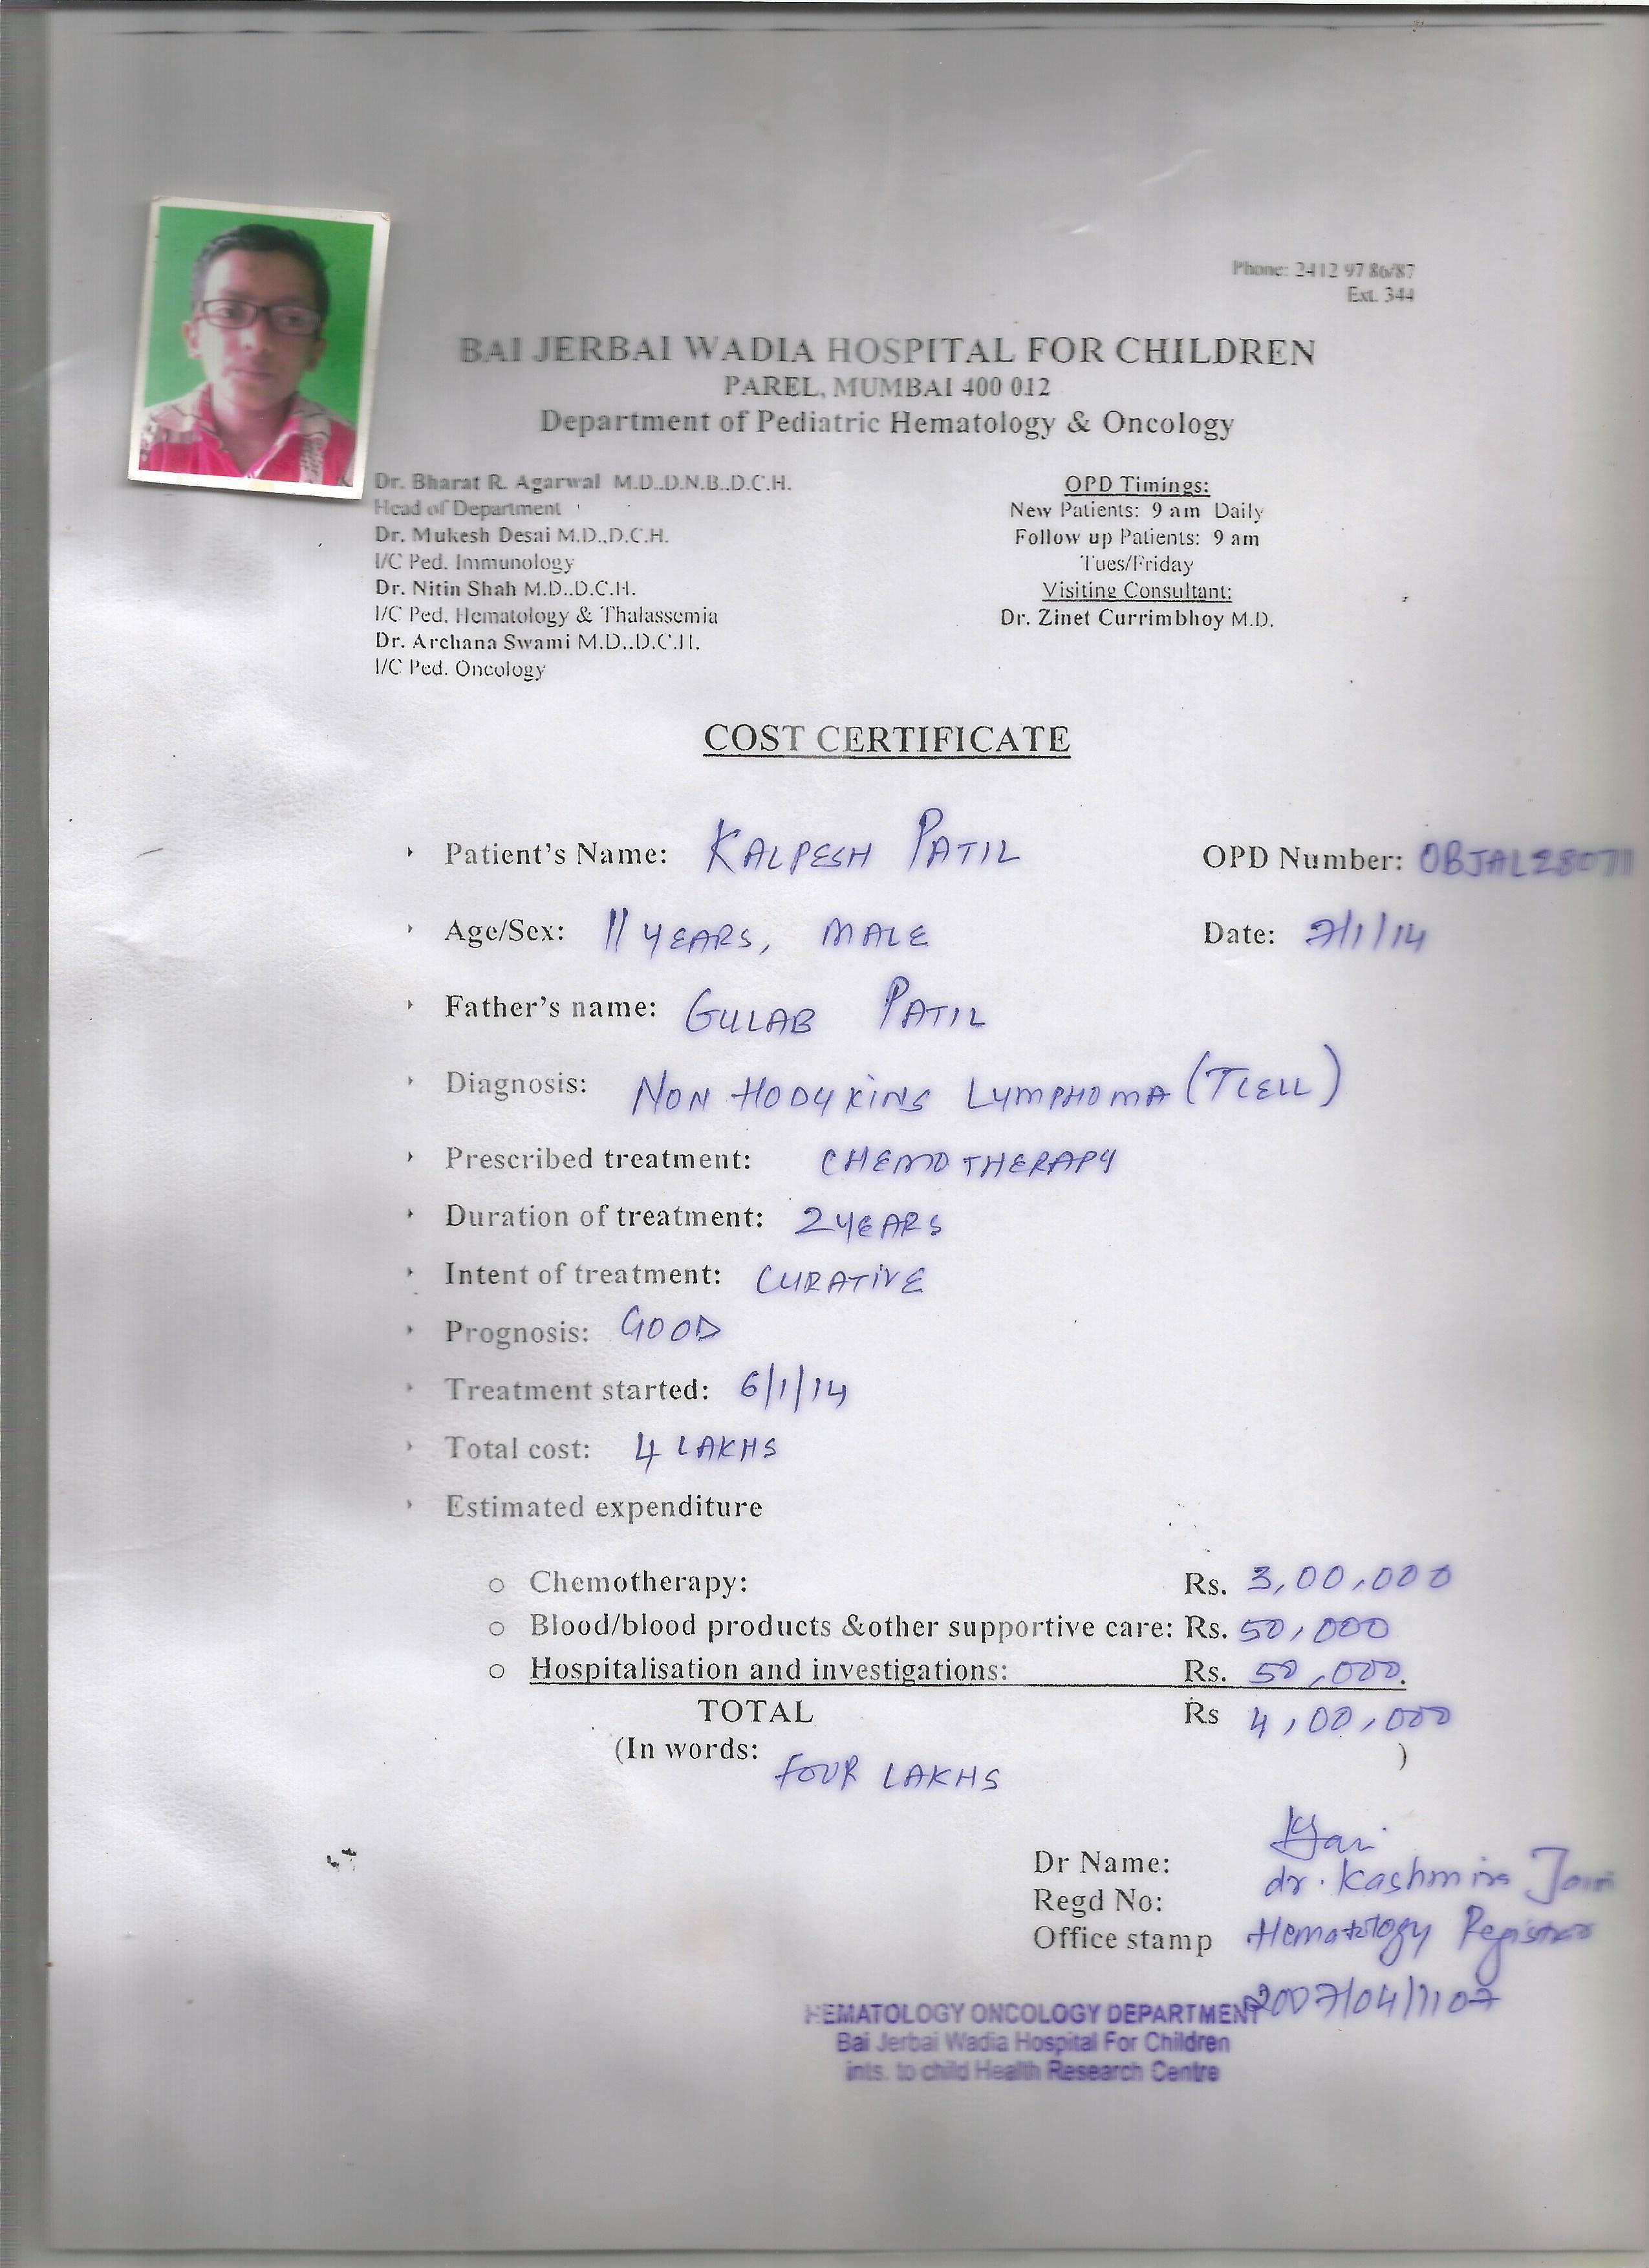 Phone: 2412 97 86/87
Ext. 344
BAI JERBAI WADIA HOSPITAL FOR CHILDREN
PAREL, MUMBAI 400 012
Department of Pediatric Hematology & Oncology
Dr. Bharat R. Agarwal M.D..D.N.B..D.C.H.
Head of Department
Dr. Mukesh Desai M.D.,D.C.H.
I/C Ped. Immunology
Dr. Nitin Shah M.D..D.C.H.
I/C Ped. Hematology & Thalassemia
Dr. Archana Swami M.D..D.C.H.
I/C Ped. Oncology
OPD Timings:
New Patients: 9 am Daily
Follow up Patients: 9 am
Tues/Friday
Visiting Consultant:
Dr. Zinet Currimbhoy M.D.
COST CERTIFICATE
Patient's Name: KALPESH PATIL OPD Number:
Age/Sex: 11 YEARS, MALE Date: 7/1/14
Father's name: GULAB PATIL
Diagnosis: NON HODGKINS LYMPHOMA (TCELL)
Prescribed treatment: CHEMOTHERAPY
Duration of treatment: 2 YEARS
Intent of treatment: CURATIVE
Prognosis: GOOD
Treatment started: 6/1/14
Total cost: 4 LAKHS
Estimated expenditure
Chemotherapy: Rs. 3,00,000
Blood/blood products &other supportive care: Rs. 50,000
Hospitalisation and investigations: Rs. 50,000.
TOTAL Rs 4,00,000
(In words: FOUR LAKHS )
Dr Name: dr. Kashmira Jain
Regd No:
Office stamp Hematology Registrar
2007/04/1107
HEMATOLOGY ONCOLOGY DEPARTMENT
Bai Jerbai Wadia Hospital For Children
ints. to child Health Research Centre